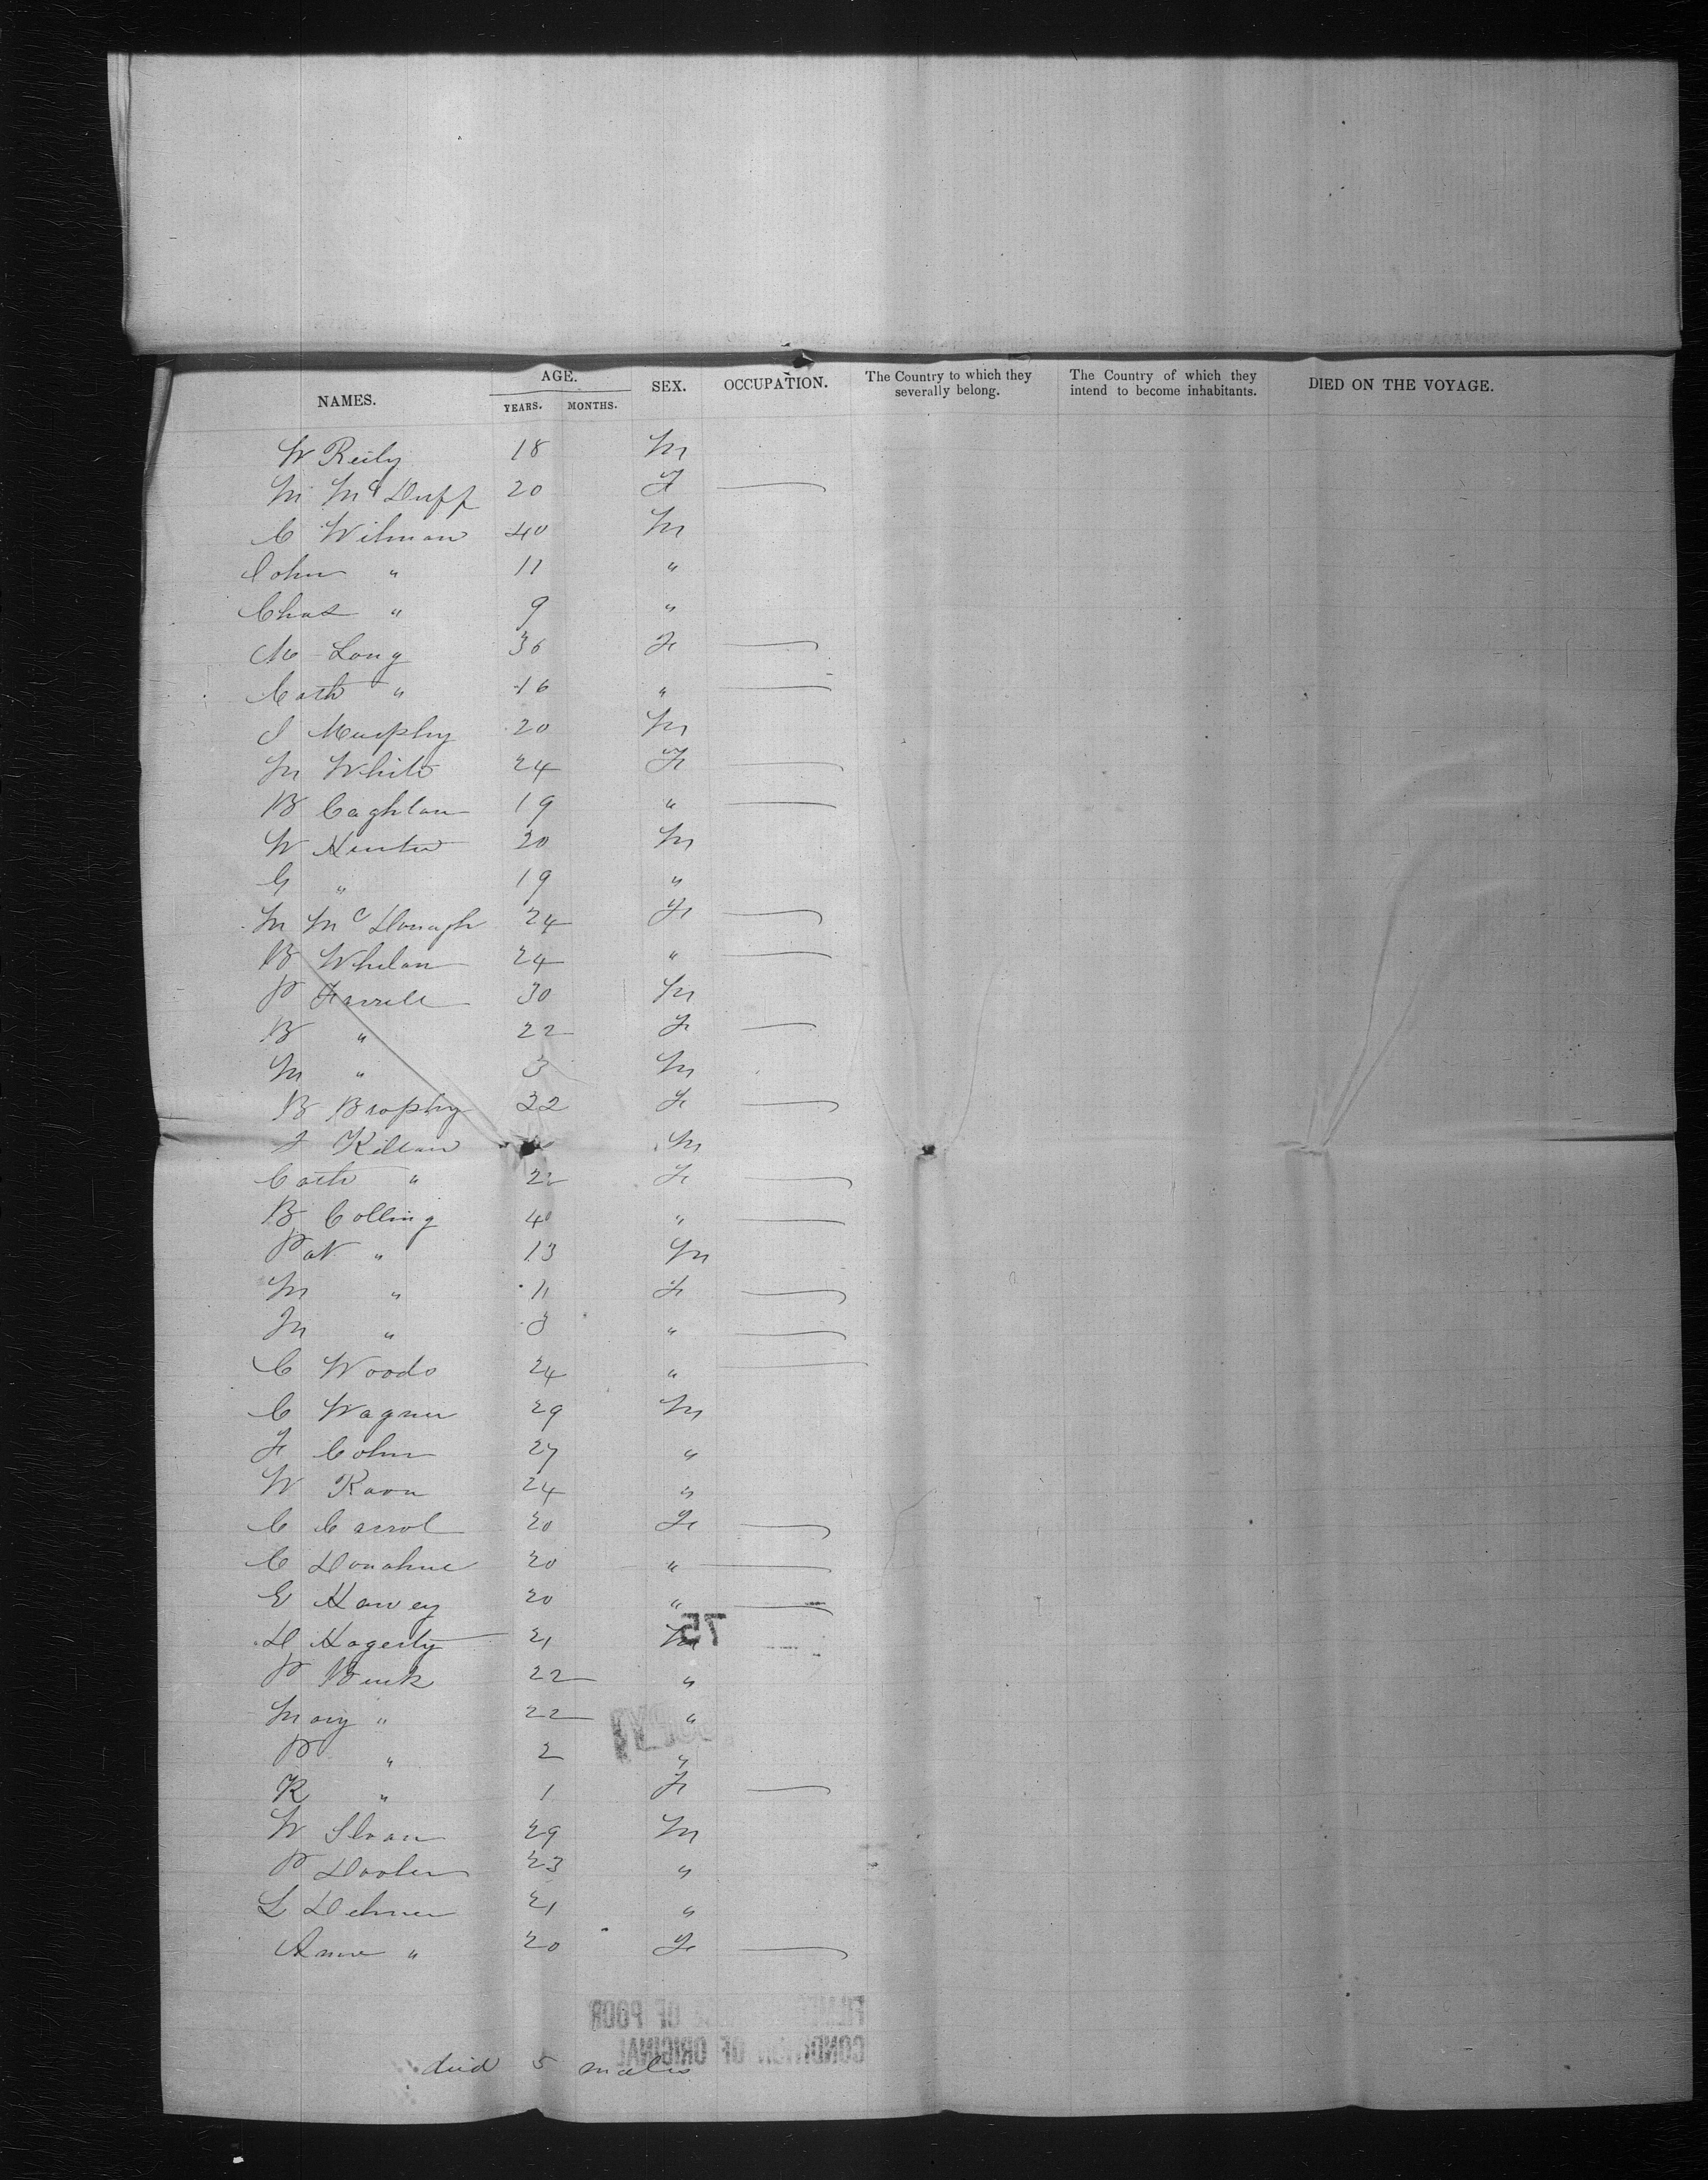 NAMES. AGE. YEARS. MONTHS. SEX. OCCUPATION. The Country to which they severally belong. The Country of which they intend to become inhabitants. DIED ON THE VOYAGE.
W Reily 18 M
M McDuff 20 F
C Wilman 40 M
John " 11 "
Chas " 9 "
M Long 36 F
Cath " 16 "
J Murphy 20 M
M White 24 F
B Caghlan 19 "
W Hunter 20 M
G " 19 "
M McDonagh 24 F
B Whelan 24 "
P Farrell 30 M
B " 22 F
M " 3 M
B Brophy 22 F
Killan M
Cath " 22 F
B Colling 40 "
Pat " 13 M
M " 11 F
M " 3 "
C Woods 24 "
C Wagner 29 M
F Cohn 27 "
W Raon 24 "
C Carrol 20 F
C Donahue 20 "
E Harvey 20 "
75
D Hagerty 21 M
P Burk 22 "
Mary " 22 "
P " 2 "
K " 1 F
W Sloan 29 M
P Doolen 23 "
L Dehner 21 "
Anne " 20 F
OF POOR
CONDITION OF ORIGINAL
died 5 males